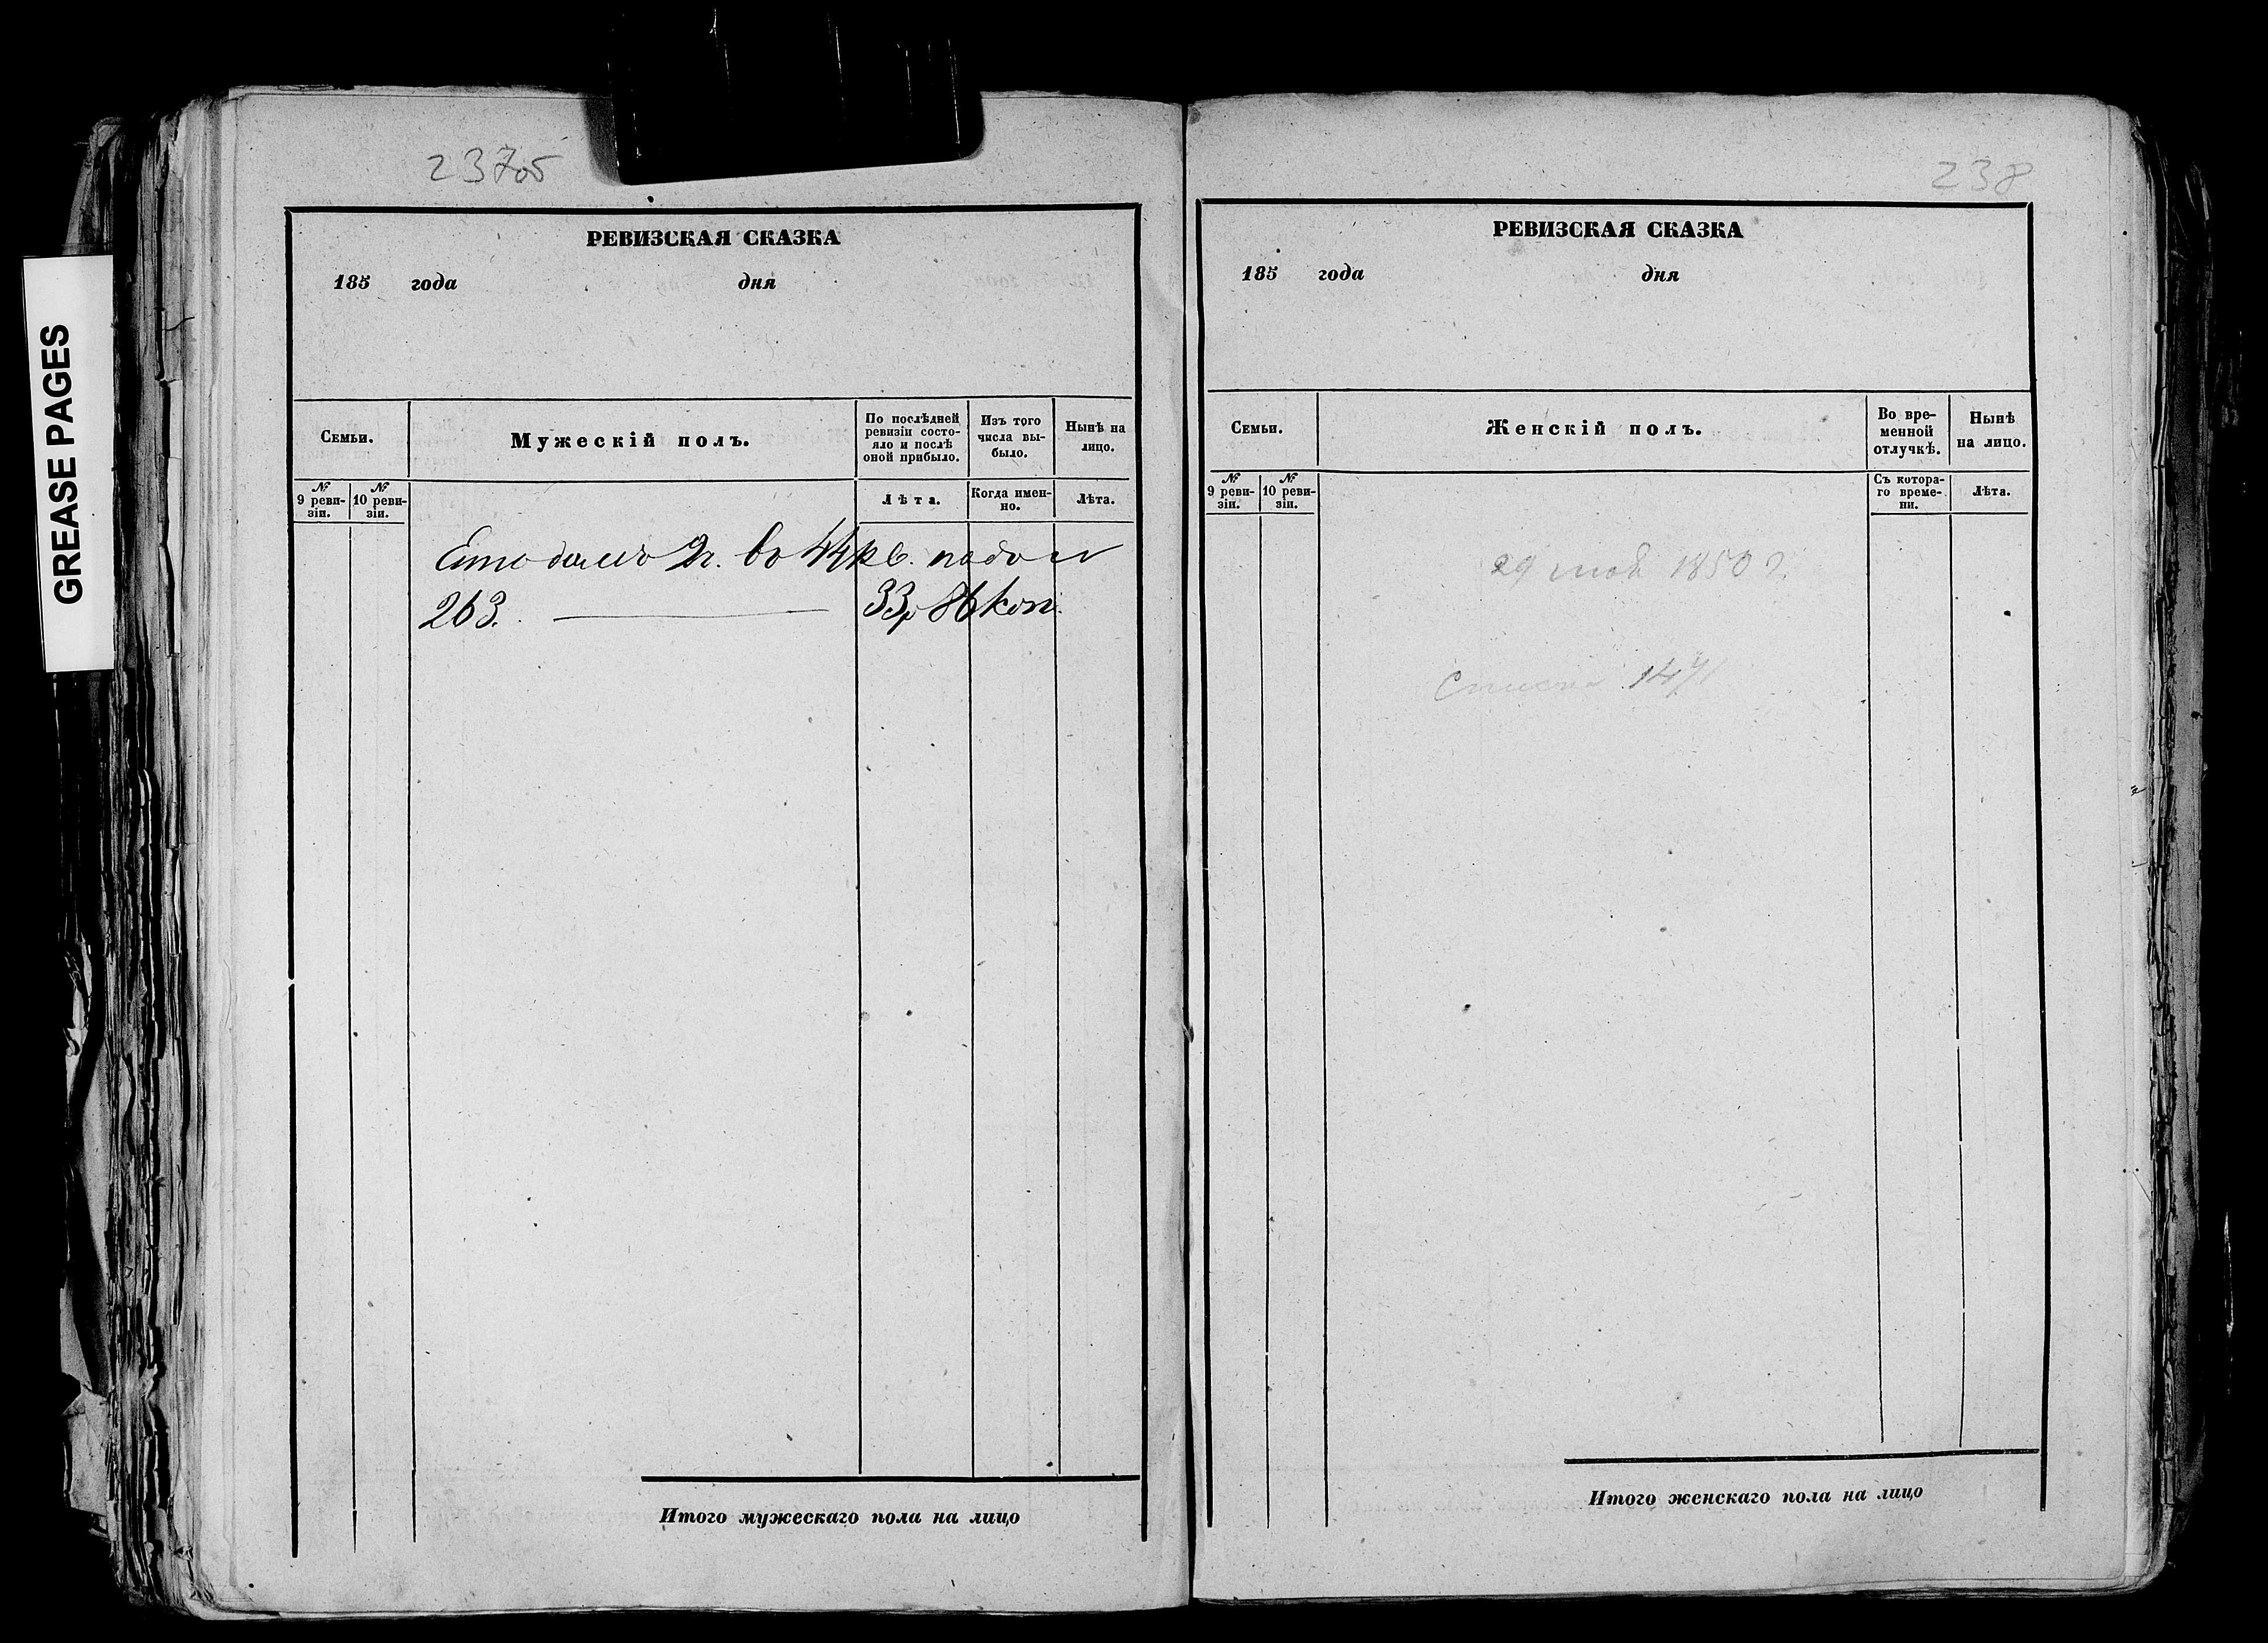 GREASE PAGES
237об
РЕВИЗСКАЯ СКАЗКА
185 года дня
Семьи.
Мужескій полъ.
По послѣдней ревизіи состо-
яло и послѣ
оной прибыло.
Изъ того
числа вы-
было.
Нынѣ на
лицо.
№
9 реви-
зіи.
№
10 реви-
зіи.
Лѣта.
Когда имен-
но.
Лѣта.
2г. во 44 кв.
263. 33р 86 коп.
Итого мужескаго пола на лицо
238
РЕВИЗСКАЯ СКАЗКА
185 года дня
Семьи.
Женскій полъ.
Во вре-
менной
отлучкѣ.
Нынѣ
на лицо.
№
9 реви-
зіи.
№
10 реви-
зіи.
Съ котора-
го време-
ни.
Лѣта.
29 мая 1850 г.
Итого женскаго пола на лицо